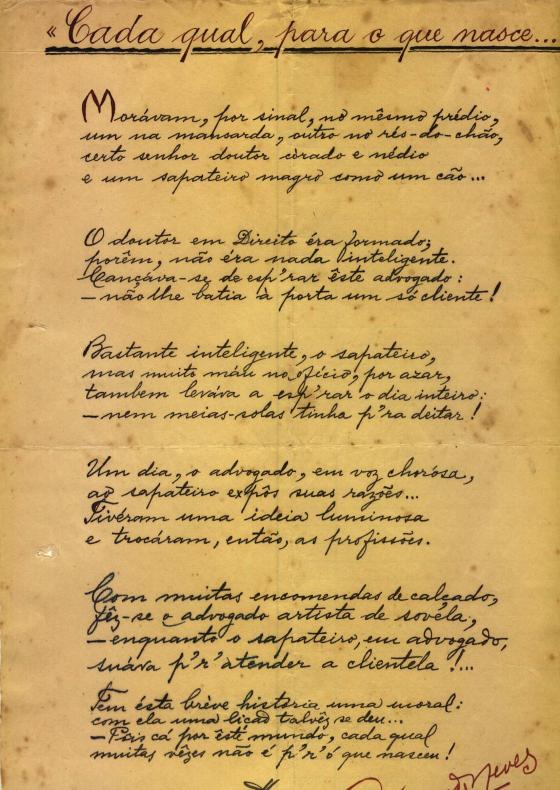 «Cada qual, para o que nasce...
Morávam, por sinal, no mêsmo prédio,
um na mansarda, outro no rés-do-chão,
certo senhor doutor córado e nédio
e um sapateiro magro como um cão...
O doutor em Direito éra formado;
porêm, não éra nada inteligente.
Cançáva-se de esp'rar êste advogado:
—não lhe batia à porta um só cliente!
Bastante inteligente, o sapateiro,
mas muito máu no ofício, por azar,
tambem leváva a esp'rar o dia inteiro:
—nem meias-solas tinha p'ra deitar!
Um dia, o advogado, em voz chorosa,
ao sapateiro expôs suas razões...
Tivéram uma ideia luminosa
e trocáram, então, as profissões.
Com muitas encomendas de calçado,
fêz-se o advogado artista de sovéla,
—enquanto o sapateiro, em advogado,
suáva p'r'atender a clientela!...
Tem ésta bréve história uma moral:
com ela uma lição talvêz se deu...
—Pois cá por êste mundo, cada qual
muitas vêzes não é p'r'ó que nasceu!
Neves